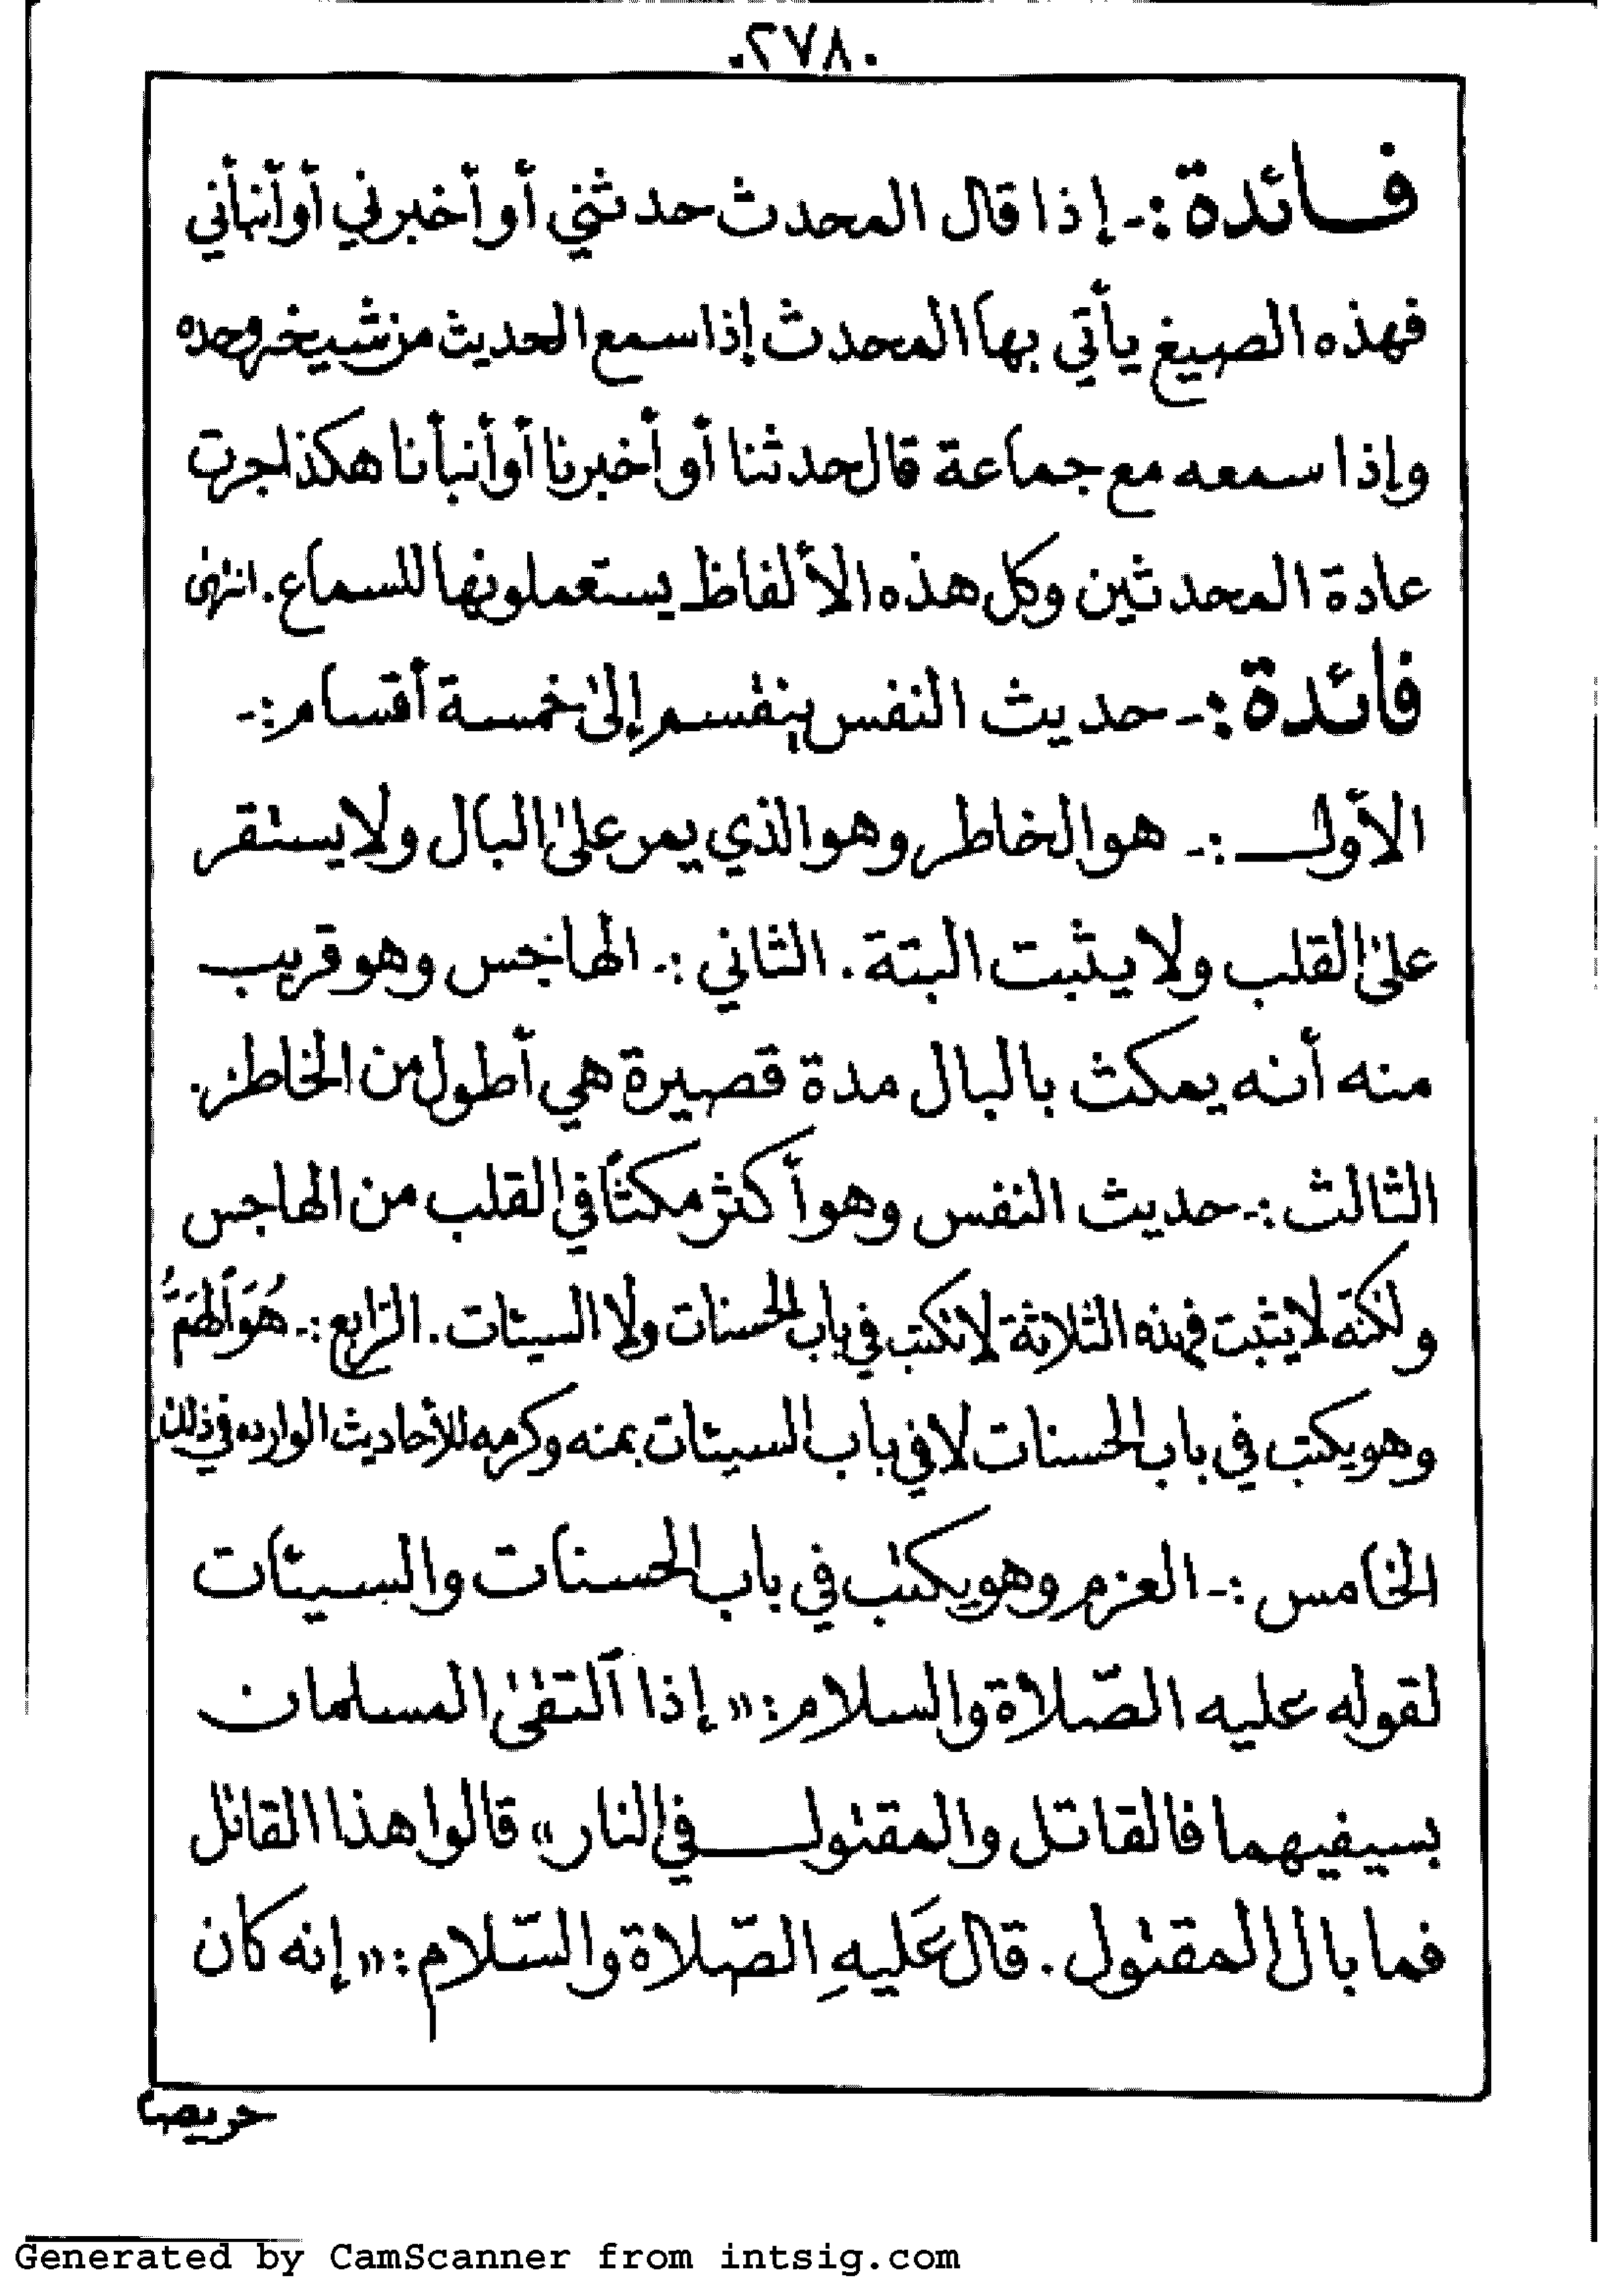 .٢٧٨.
فائدة :- إذا قال المحدث حدثني أو أخبرني أو أنبأني
فهذه الصيغ يأتي بها المحدث إذا سمع الحديث من شيخه وحده
وإذا سمعه مع جماعة قال حدثنا أو أخبرنا أو أنبأنا هكذا جرت
عادة المحدثين وكل هذه الألفاظ يستعملونها للسماع . انتهى
فائدة :- حديث النفس ينقسم إلى خمسة أقسام :-
الأول :- هو الخاطر وهو الذي يمر على البال ولا يستقر
على القلب ولا يثبت البتة . الثاني :- الهاجس وهو قريب
منه أنه يمكث بالبال مدة قصيرة هي أطول من الخاطر .
الثالث :- حديث النفس وهو أكثر مكثاً في القلب من الهاجس
ولكنه لا يثبت فهذه الثلاثة لا تكتب في باب الحسنات ولا السيئات . الرّابع :- هُوَ ٱلهَمُّ
وهو يكتب في باب الحسنات لا في باب السيئات بمنه وكرمه للأحاديث الوارده في ذلك
الخامس :- العزم وهو يكتب في باب الحسنات والسيئات
لقوله عليه الصّلاة والسلام : « إذا ٱلتقى المسلمان
بسيفيهما فالقاتل والمقتول في النار » قالوا هذا القاتل
فما بال المقتول . قال عَليهِ الصّلاة والسّلام : « إنه كان
حريصا
Generated by CamScanner from intsig.com